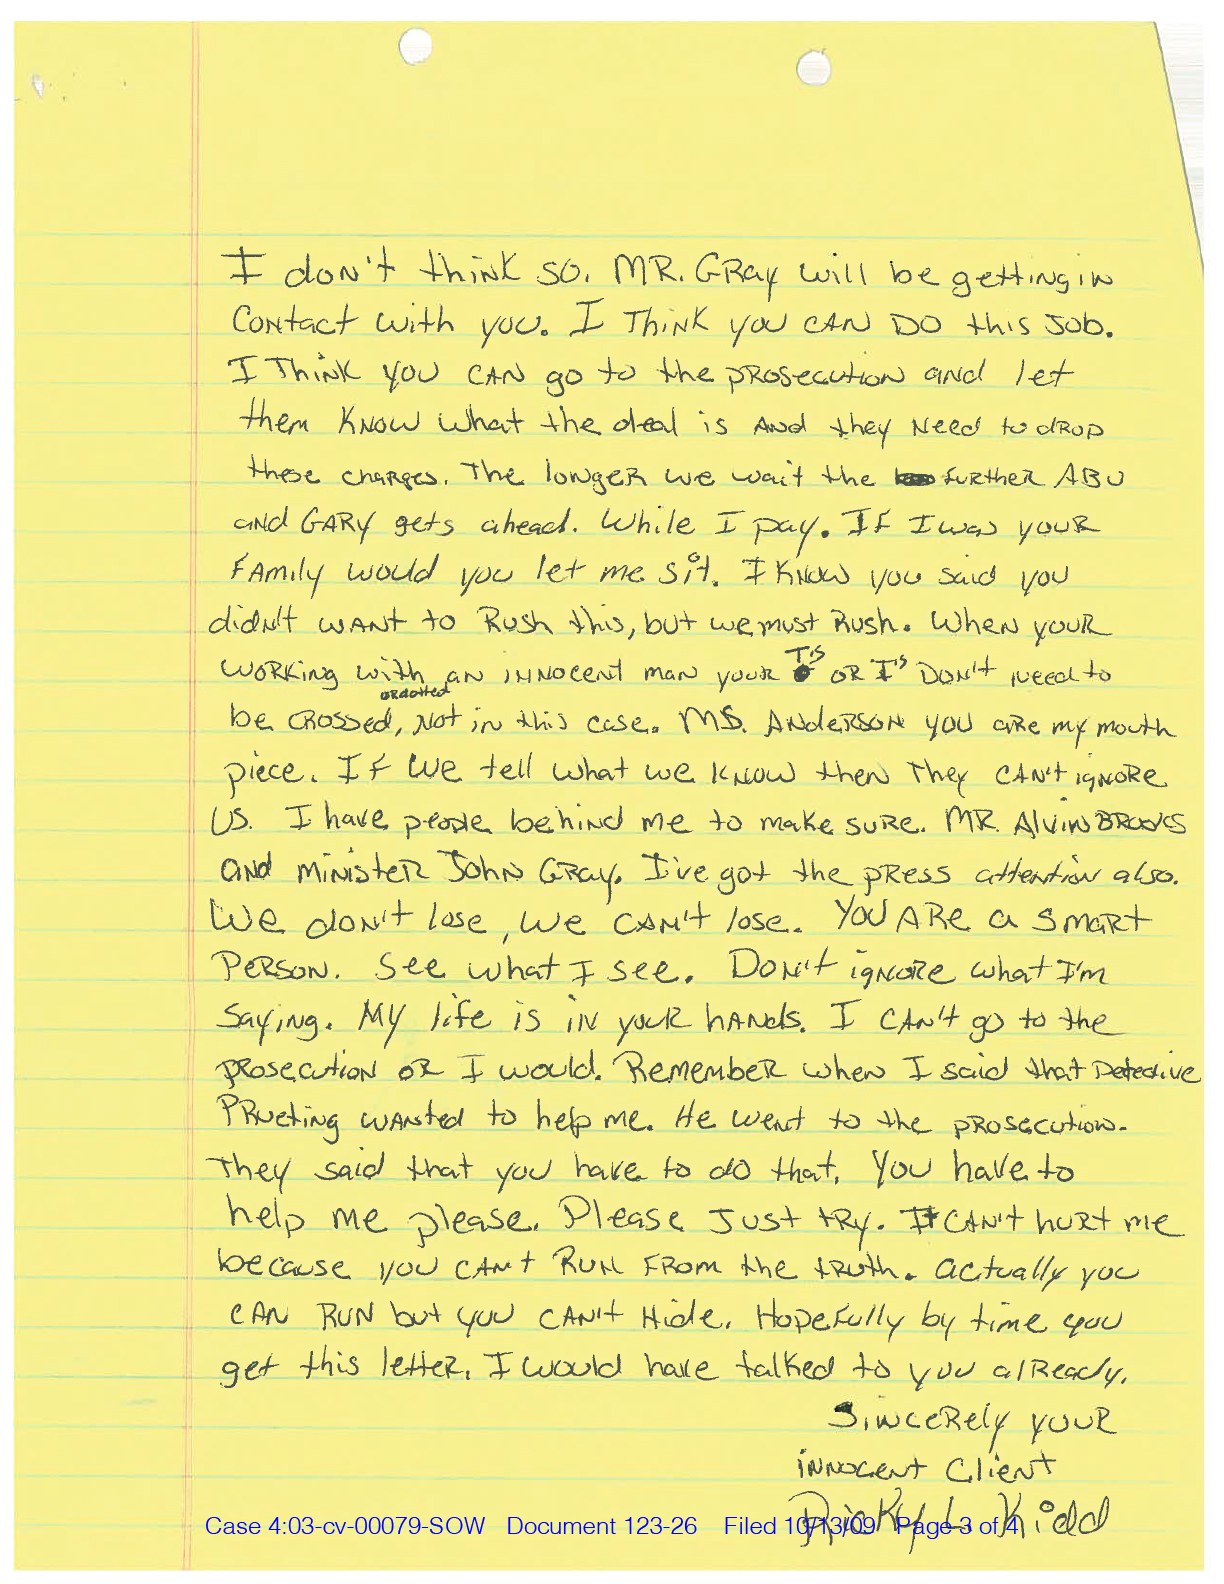 I don't think so. MR. GRay will be getting in
Contact with you. I Think you CAN DO this Job.
I Think you CAN go to the prosecution and let
them Know what the deal is And they Need to drop
these charges. The longer we wait the further ABU
and GARY gets ahead. While I pay. If I was your
family would you let me sit. I know you said you
didn't want to Rush this, but we must Rush. When your
working with an innocent man your T's or I's Don't Need to
be crossed, or dotted Not in this case. MS. Anderson you are my mouth
piece. If we tell what we know then They can't ignore
us. I have people behind me to make sure. MR. Alvin Brooks
and minister John Gray. I've got the press attention also.
We don't lose, we can't lose. You are a smart
Person. See what I see. Don't ignore what I'm
saying. My life is in your hands. I can't go to the
prosecution or I would. Remember when I said that Detective
Prueting wanted to help me. He went to the prosecution.
They said that you have to do that. You have to
help me please. Please Just try. It can't hurt me
because you can't Run from the truth. actually you
can Run but you can't Hide. Hopefully by time you
get this letter. I would have talked to you already.
Sincerely your
innocent Client
Ricky L. Kidd
Case 4:03-cv-00079-SOW Document 123-26 Filed 10/13/09 Page 3 of 4